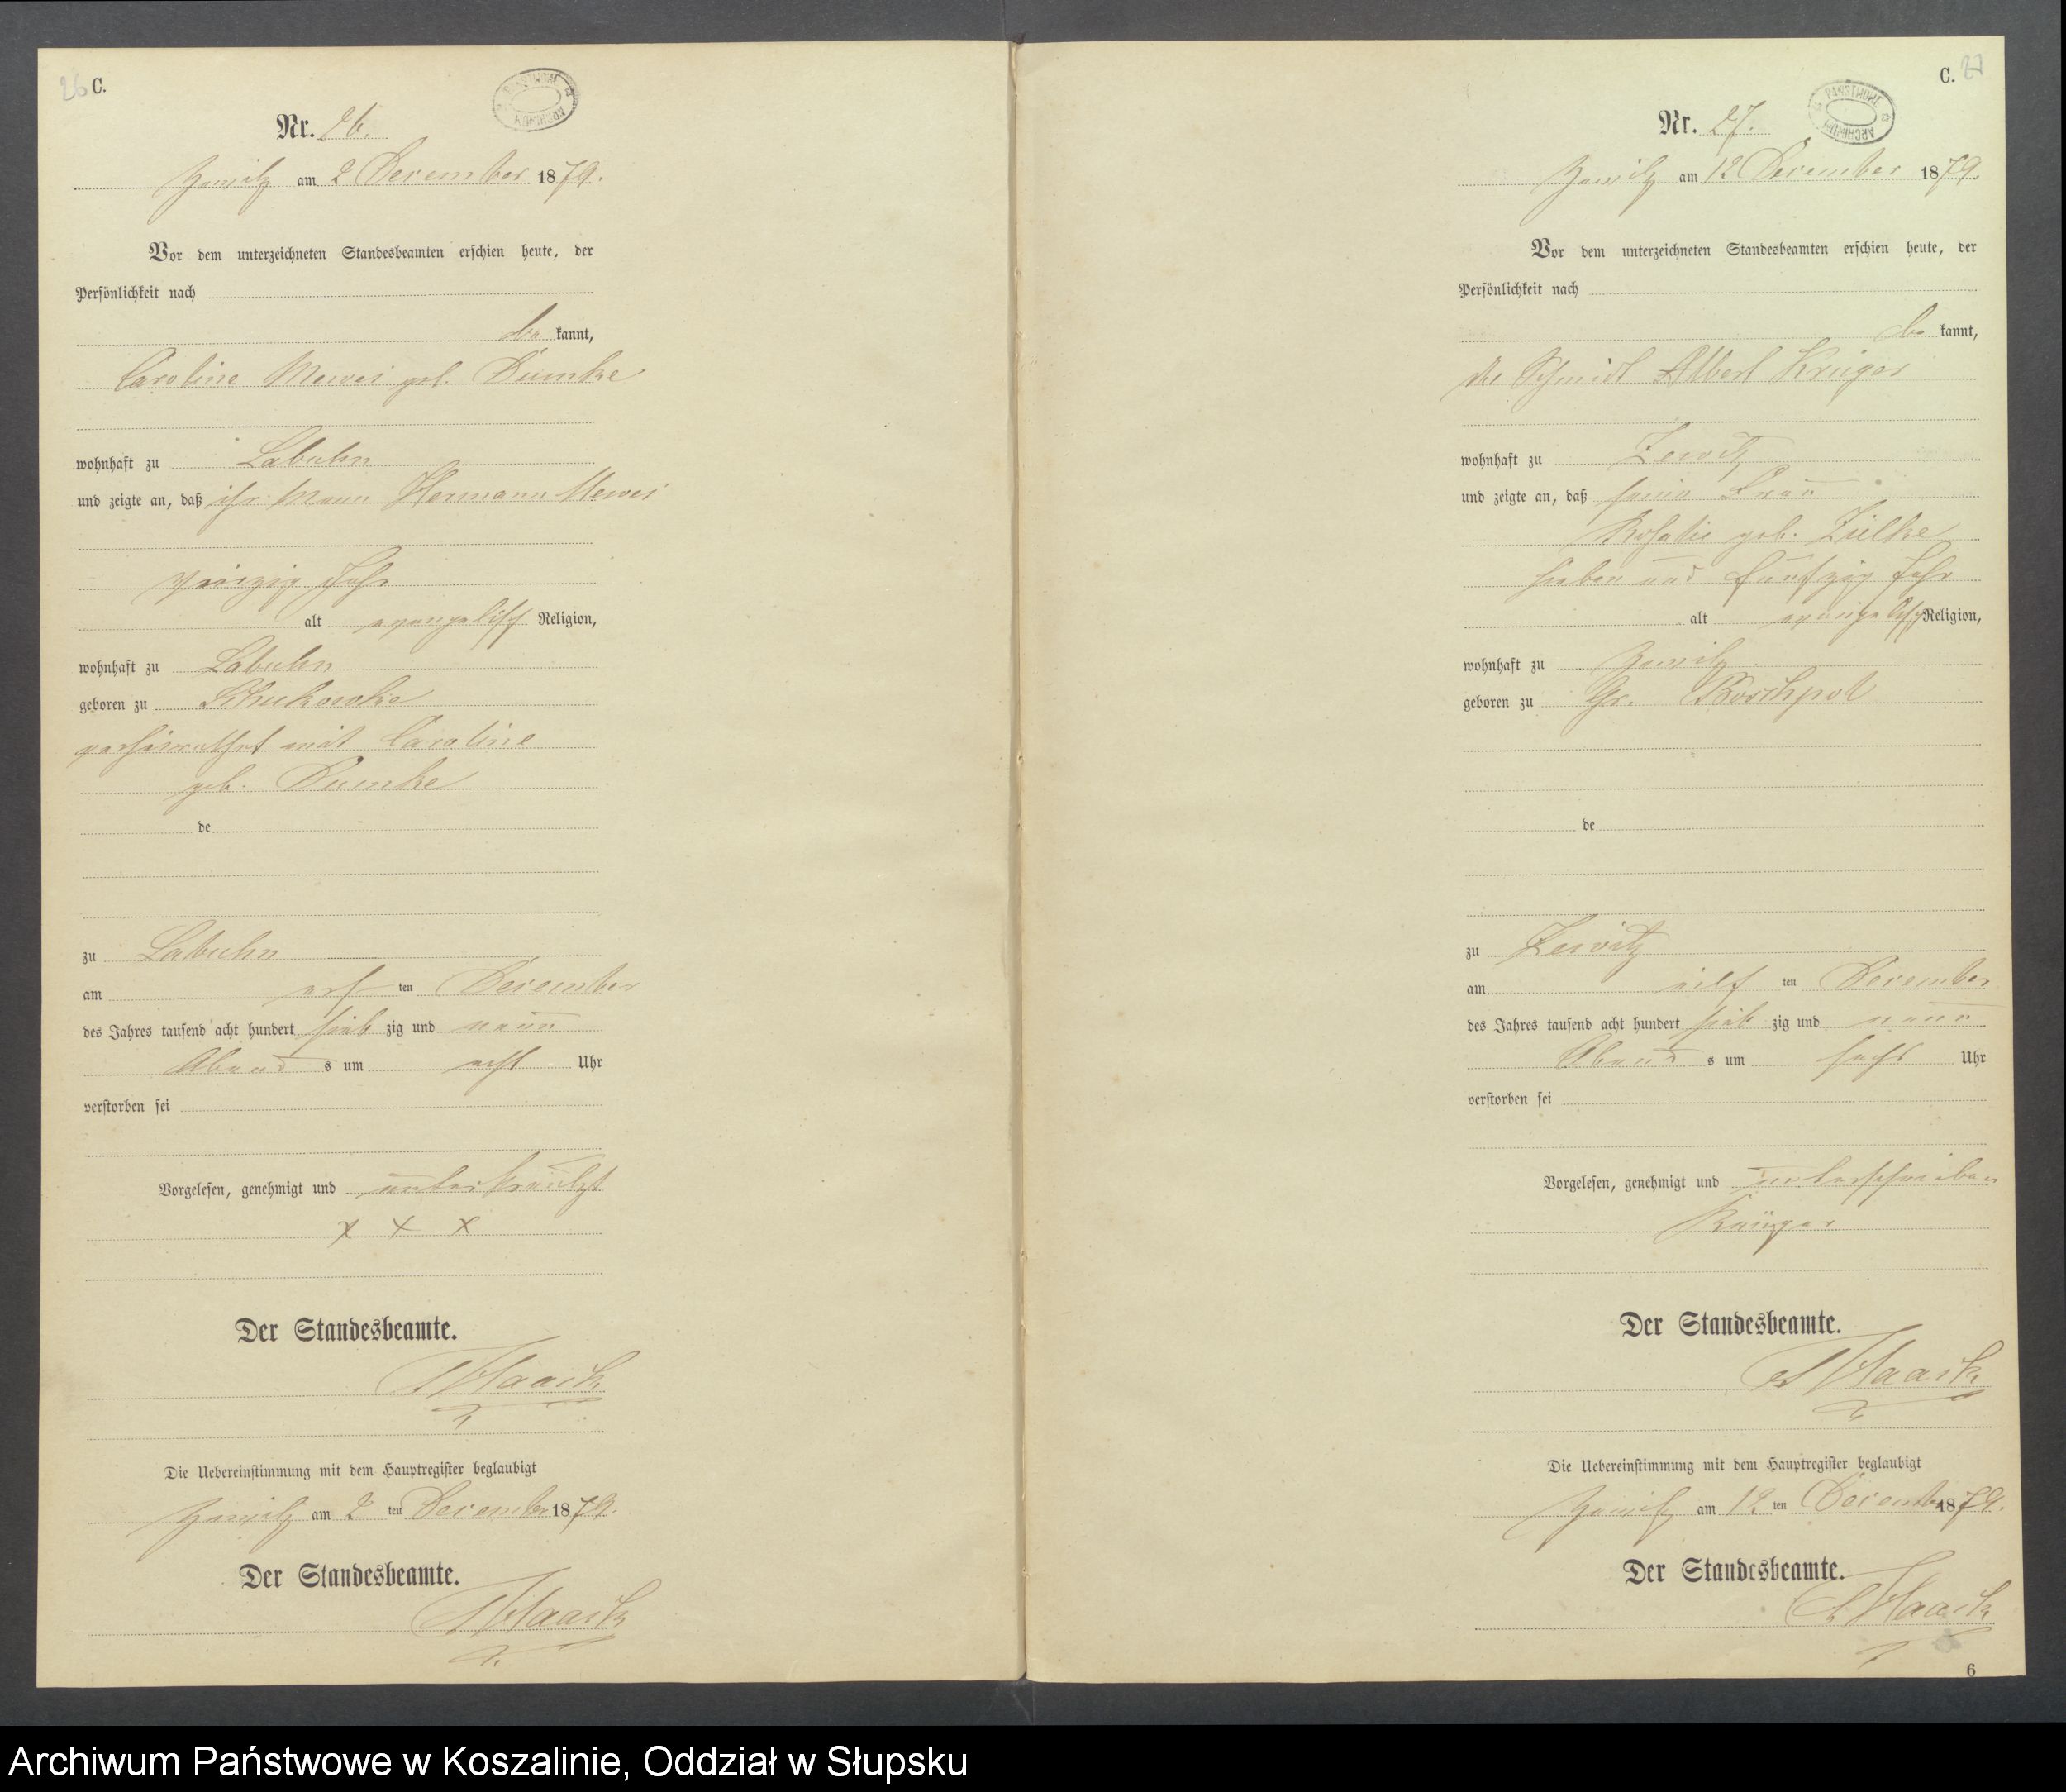 26 C.
PANSTWOW ARCHIWUM
Nr. 26.
am 2 December 1879.
Vor dem unterzeichneten Standesbeamten erschien heute, der
Persönlichkeit nach
be kannt,
Caroline Mewes geb. Dumke
wohnhaft zu Labuhn
und zeigte an, daß ihr Mann Hermann Mewes
vierzig Jahr
alt evangelisch Religion,
wohnhaft zu Labuhn
geboren zu
verheirathet mit Caroline
geb. Dumke
de
zu Labuhn
am ersten December
des Jahres tausend acht hundert sieb zig und neun
Abend s um acht Uhr
verstorben sei
Vorgelesen, genehmigt und unterkreuzt
x x x
Der Standesbeamte.
Haack
Die Uebereinstimmung mit dem Hauptregister beglaubigt
am 2 ten December 1879.
Der Standesbeamte.
Haack
C. 27
PANSTWOWE ARCHIWUM
Nr. 27.
am 12 December 1879.
Vor dem unterzeichneten Standesbeamten erschien heute, der
Persönlichkeit nach
be kannt,
der Schmidt Albert Krüger
wohnhaft zu Zewitz
und zeigte an, daß seine Frau
Rosalie geb. Zielke
sieben und funfzig Jahr
alt evangelisch Religion,
wohnhaft zu
geboren zu Gr.
de
zu Zewitz
am eilf ten December
des Jahres tausend acht hundert sieb zig und neun
Abend s um sechs Uhr
verstorben sei
Vorgelesen, genehmigt und unterschrieben
Krüger
Der Standesbeamte.
Haack
Die Uebereinstimmung mit dem Hauptregister beglaubigt
am 12 ten December 1879.
Der Standesbeamte.
Haack
6
Archiwum Państwowe w Koszalinie, Oddział w Słupsku